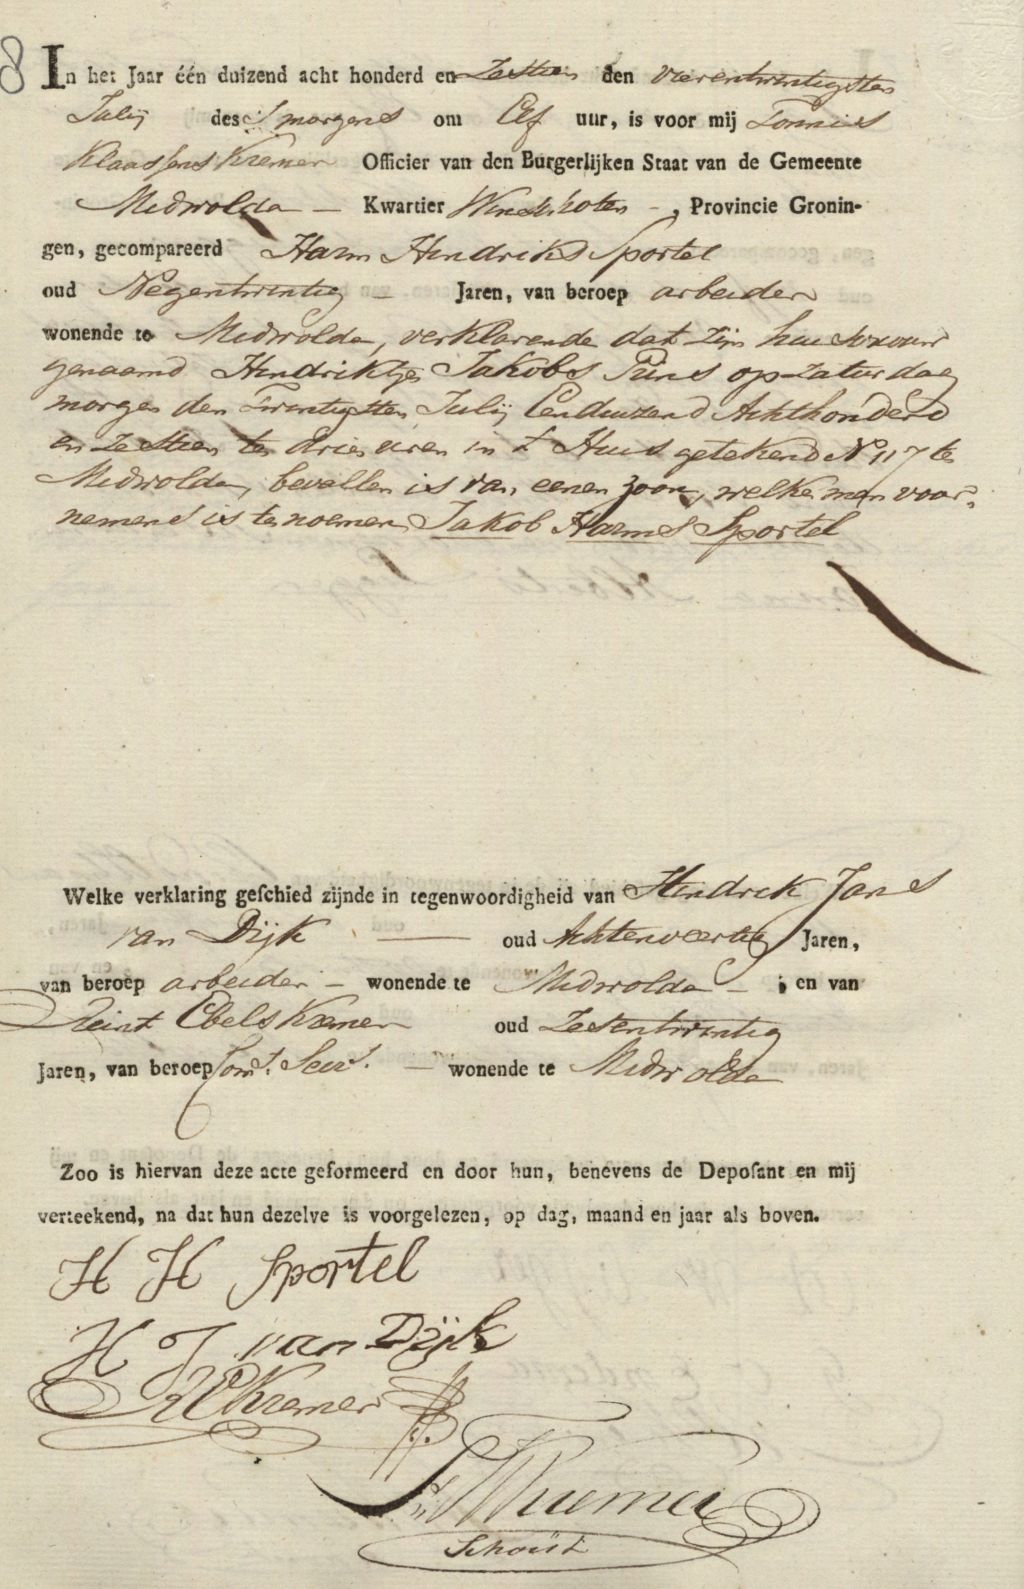 8
In het Jaar één duizend acht honderd en Zestien den vierentwintigsten
Julij des S'morgens om Elf uur, is voor mij Tonnis
Klaassens Kremer Officier van den Burgerlijken Staat van de Gemeente
Midwolda — Kwartier Winschoten -, Provincie Gronin-
gen, gecompareerd Harm Hendriks Sportel
oud Negentwintig — Jaren, van beroep arbeider
wonende te Midwolda, verklarende dat zijn huisvrouw
genaamd Hendriktje Jakobs Puns op Zaturdag
morgen den Twintigsten Julij Eenduizend Achthonderd
en Zestien te drie uren in 't Huis getekend No 117 te
Midwolda, bevallen is van eenen zoon, welke men voor-
nemens is te noemen Jakob Harms Sportel
Welke verklaring geschied zijnde in tegenwoordigheid van Hindrik Jans
van Dijk — oud Achtenveertig Jaren,
van beroep arbeider — wonende te Midwolda — ; en van
Reint Ebels Kremer oud Zesentwintig
Jaren, van beroep Com. Secr. — wonende te Midwolda
Zoo is hiervan deze acte geformeerd en door hun, benevens de Deposant en mij
verteekend, na dat hun dezelve is voorgelezen, op dag, maand en jaar als boven.
H H Sportel
H J van Dijk
R E Kremer
T K Kremer
Schout